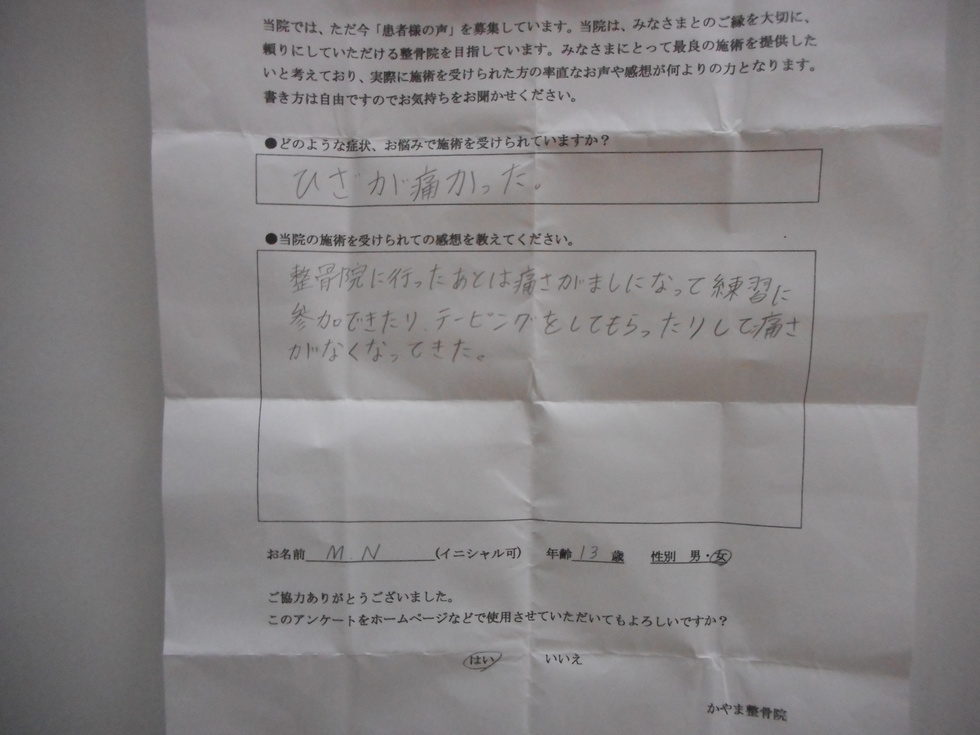 当院では、ただ今「患者様の声」を募集しています。当院は、みなさまとのご縁を大切に、
頼りにしていただける整骨院を目指しています。みなさまにとって最良の施術を提供した
いと考えており、実際に施術を受けられた方の率直なお声や感想が何よりの力となります。
書き方は自由ですのでお気持ちをお聞かせください。
●どのような症状、お悩みで施術を受けられていますか？
ひざが痛かった。
●当院の施術を受けられての感想を教えてください。
整骨院に行ったあとは痛さがましになって練習に
参加できたり、テーピングをしてもらったりして痛さ
がなくなってきた。
お名前 M.N (イニシャル可) 年齢 13 歳 性別 男・女
ご協力ありがとうございました。
このアンケートをホームページなどで使用させていただいてもよろしいですか？
はい いいえ
かやま整骨院